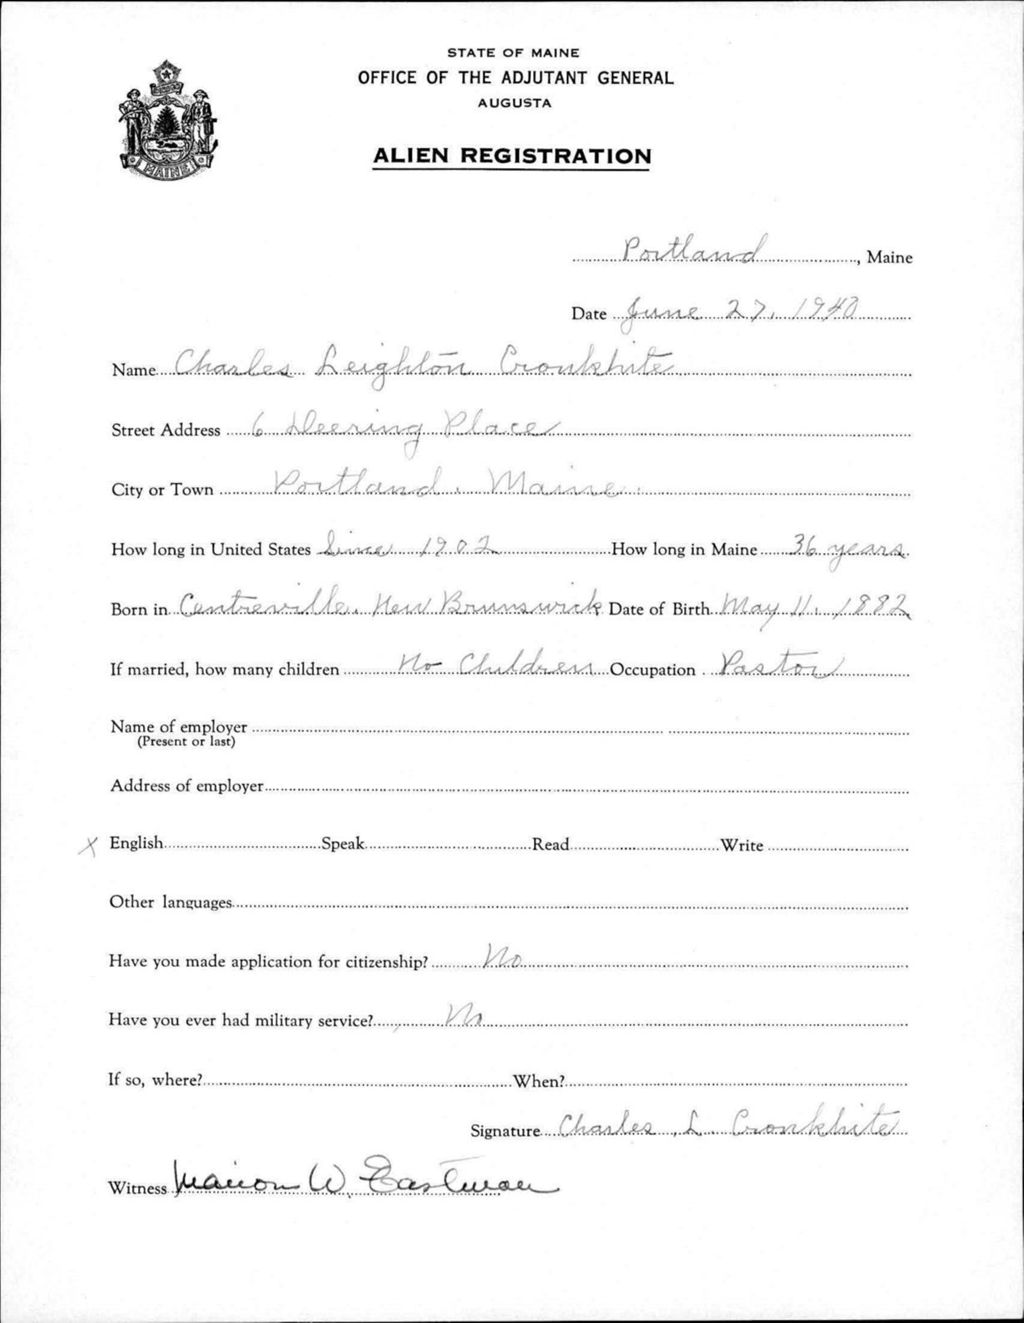 STATE OF MAINE
OFFICE OF THE ADJUTANT GENERAL
AUGUSTA
ALIEN REGISTRATION
MAINE
Portland, Maine
Date June 27, 1940
Name Charles Leighton Cronkhite
Street Address 6 Deering Place
City or Town Portland, Maine.
How long in United States Since 1902 How long in Maine 36 years.
Born in Centreville, New Brunswick Date of Birth May 11, 1882
If married, how many children No Children Occupation Pastor
Name of employer
(Present or last)
Address of employer
X English Speak Read Write
Other languages
Have you made application for citizenship? No
Have you ever had military service? No
If so, where? When?
Signature Charles L. Cronkhite
Witness Marion W. Eastman